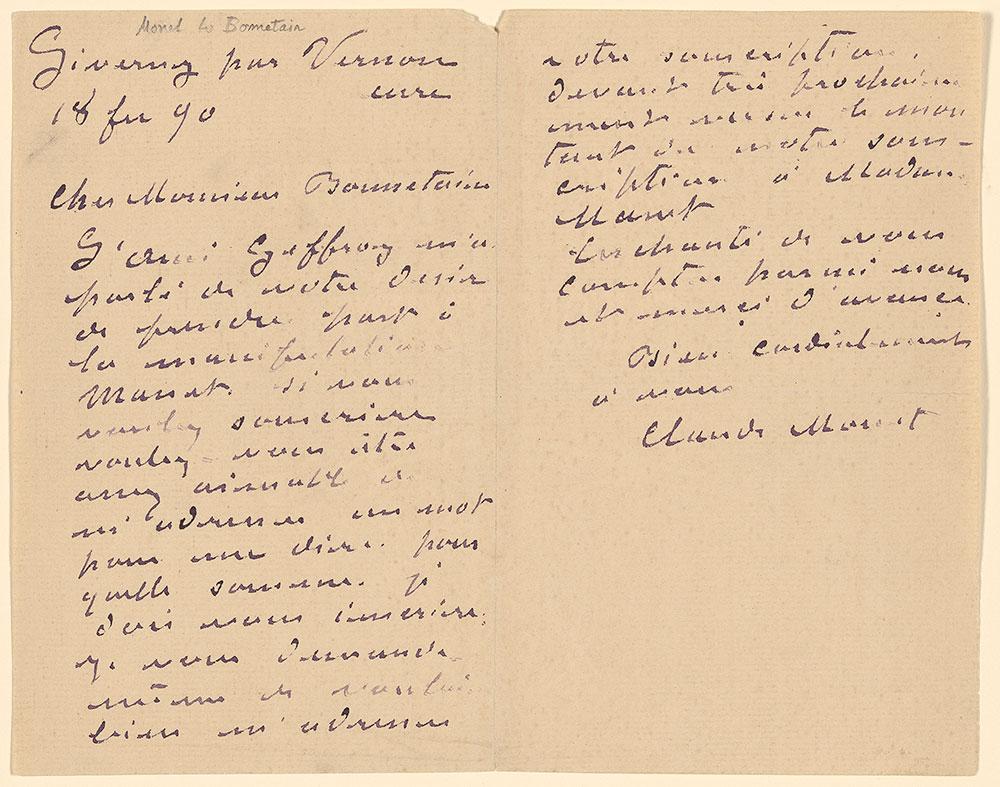 Monet to Bonnetain
Giverny par Vernon
eure
18 fev 90
Cher Monsieur Bonnetain
L'ami Geffroy m'a
parlé de votre désir
de prendre part à
la manifestation
Manet. si vous
voulez souscrire
voulez-vous être
assez aimable de
m'adresser un mot
pour me dire pour
quelle somme je
dois vous inscrire.
je vous demande
même de vouloir
bien m'adresser
votre souscription.
devant très prochaine
ment verser le mon
tant de notre sous-
cription à Madame
Manet
Enchanté de vous
compter parmi nous
et merci d'avance
Bien cordialement
à vous
Claude Monet